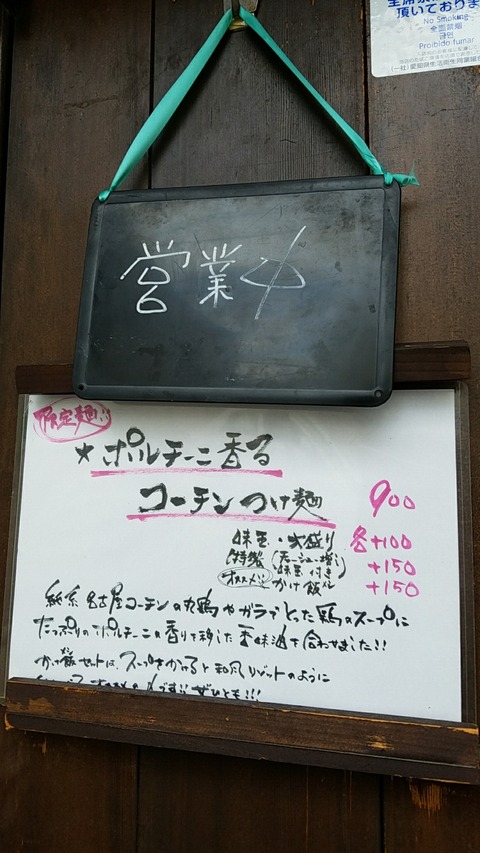 頂いておりま
No Smoking
全面禁煙
금연
Proibido fumar
(一社)愛知県生活衛生同業組合
営業中
限定麺!!
★ポルチーニ香る
コーチンつけ麺 900
味玉・大盛り 各+100
特製(チャーシュー増し 味玉付き) +150
オススメ!! かけ飯〆 +150
純系名古屋コーチンの丸鶏やガラでとった鶏のスープに
たっぷりのポルチーニの香りを移した香味油を合わせました!!
かけ飯セットは、スープをかけると和風リゾットのように
ぜひとも!!!